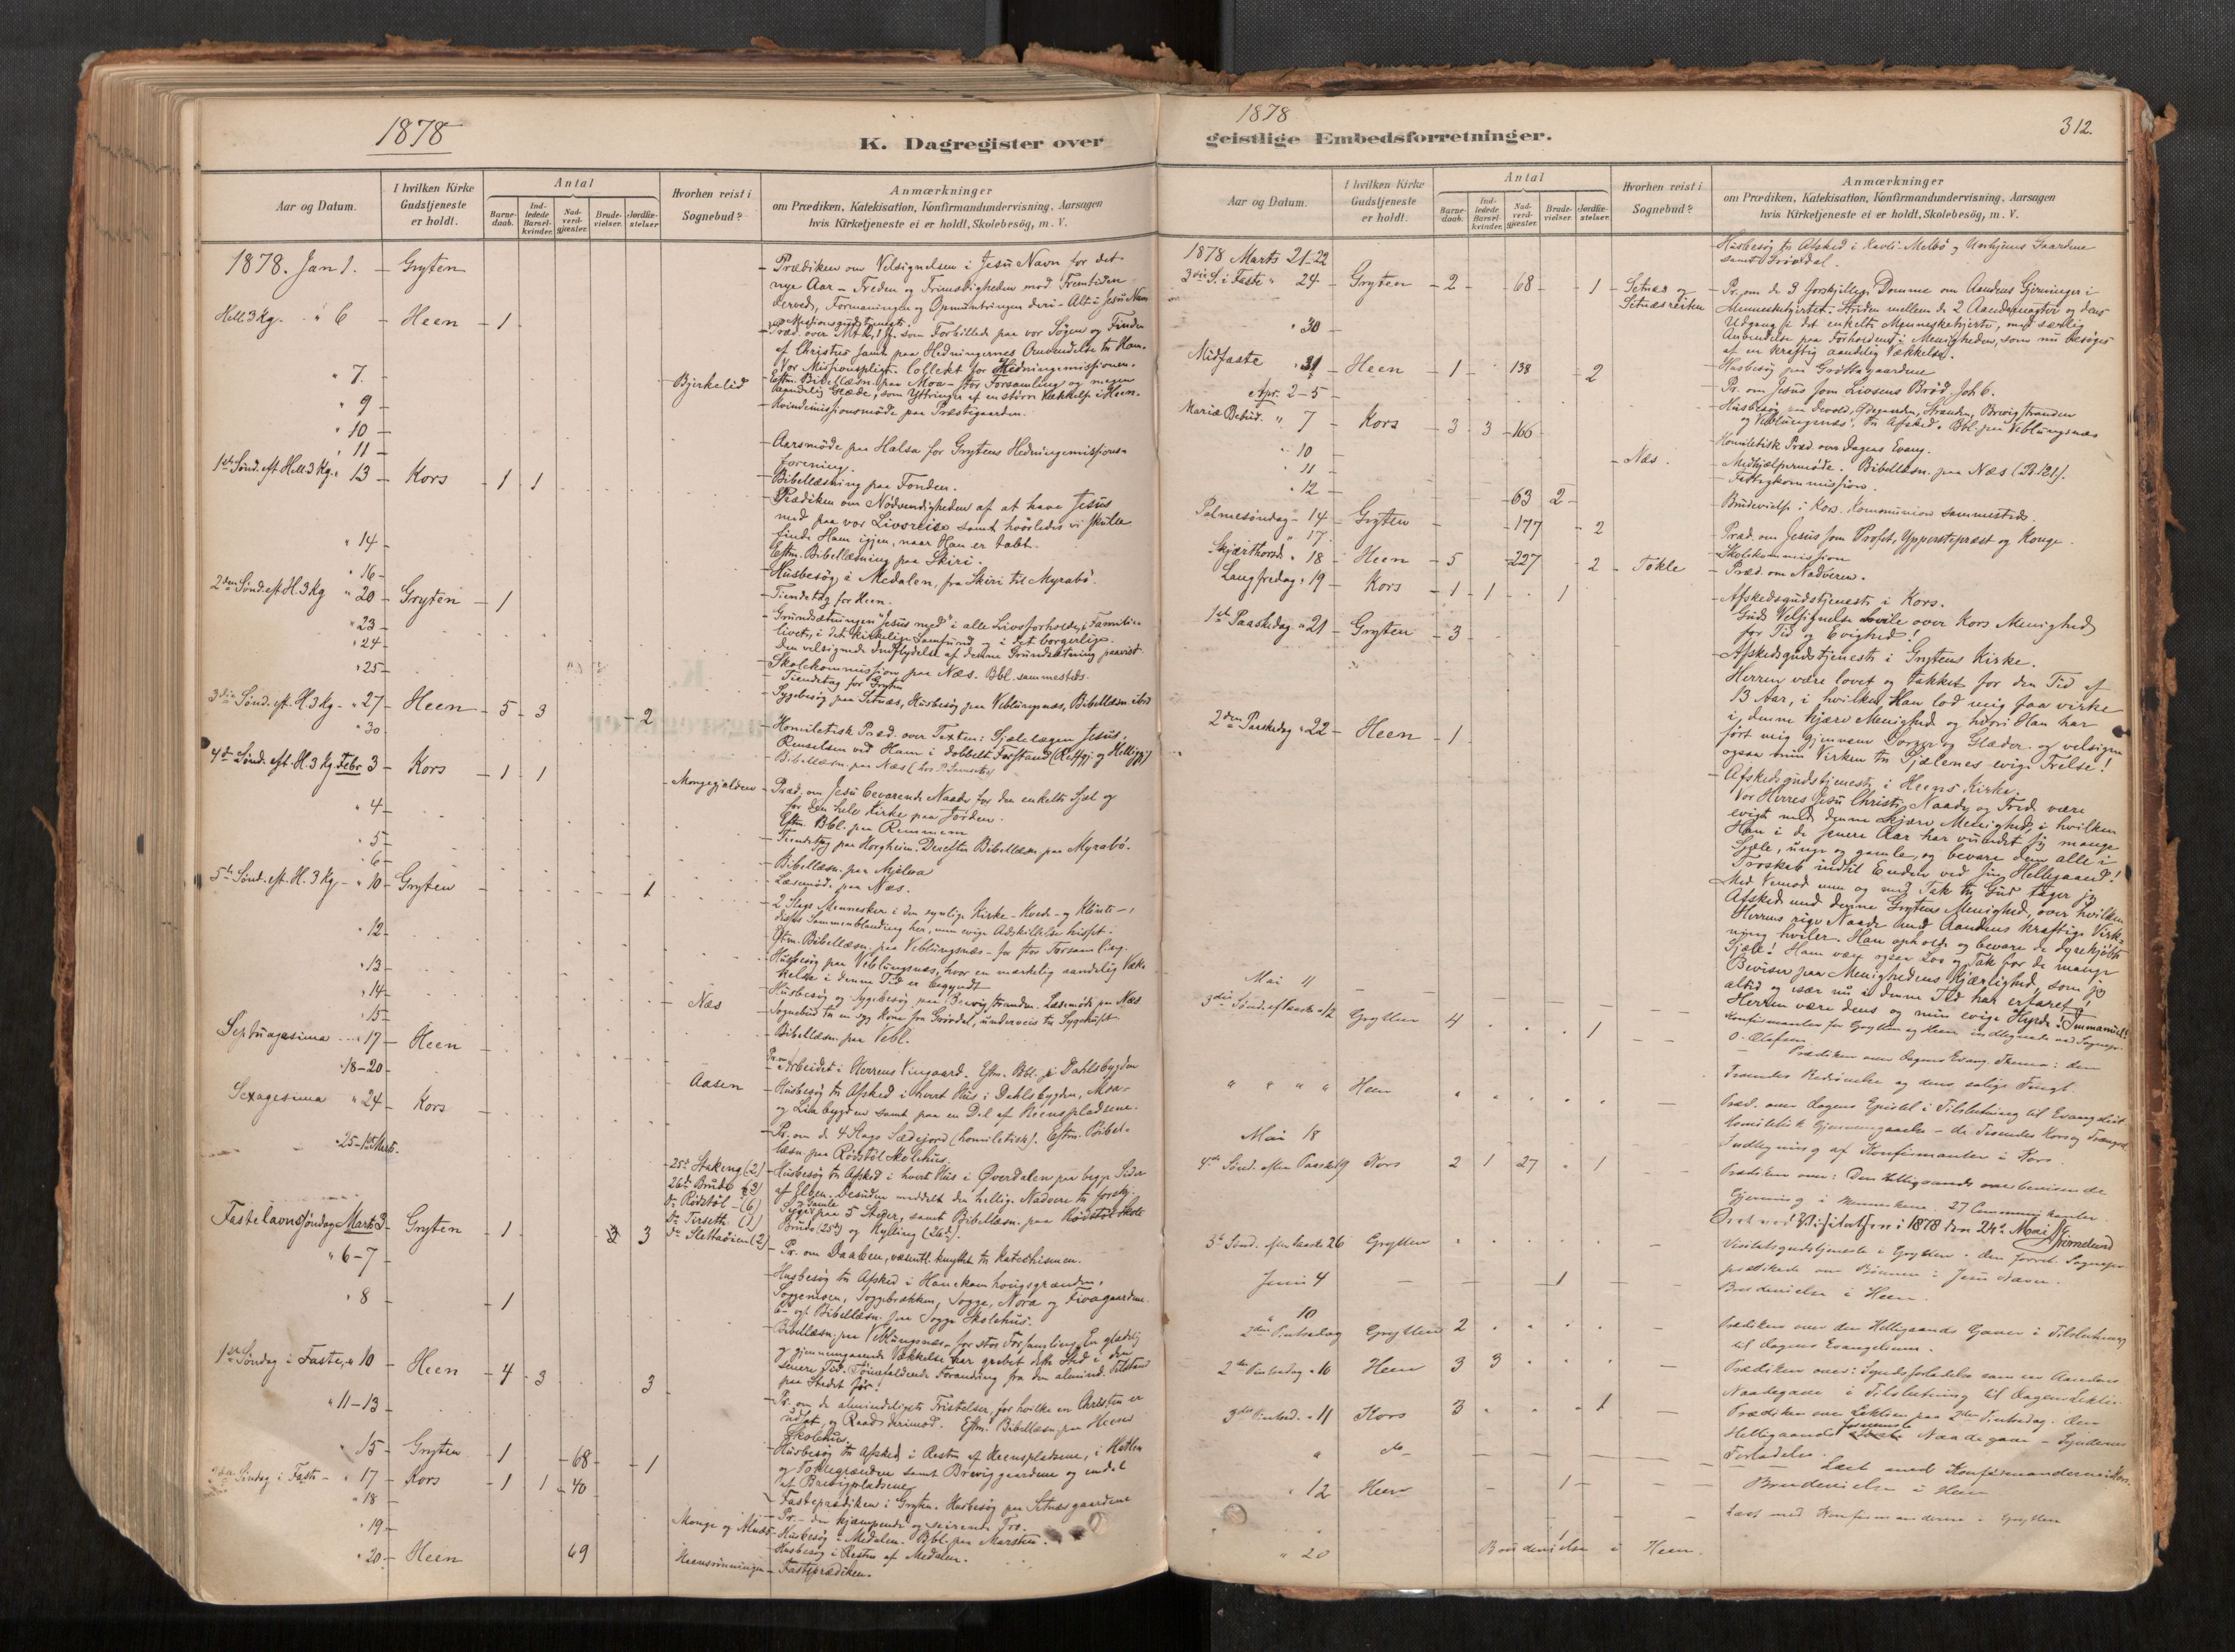 1878
K. Dagregister over
Aar og Datum.
I hvilken Kirke
Gudstjeneste
er holdt.
Antal
Barne-
daab.
Ind-
ledede
Barsel-
kvinder.
Nad-
verd-
gjæster.
Brude-
vielser.
Jordfæ-
stelser
Hvorhen reist i
Sognebud?
Anmærkninger
om Prædiken, Katekisation, Konfirmandundervisning, Aarsagen
hvis Kirketjeneste ei er holdt, Skolebesög, m. V.
1878. Jan 1. - Gryten
- Prædiken om Velsignelsen i Jesu Navn for det
nye Aar - Freden og Frimodigheden mod Fremtiden
derved, Formaningen og Opmuntringen deri - Alt i Jesu Navn
Hell 3 Kg. " 6 - Heen - 1
Missionsgudstjeneste
som Forbillede paa vor Søgen og Finden
af Christus samt paa Hedningernes Omvendelse til Ham.
Vor Missionspligt. Collect for Hedningemissionen.
" 7 - Bjerkelid
- Eftm. Bibellæsn. paa Moa - stor Forsamling og megen
aandelig Glæde, som Yttringer af en større Vækkelse i Heen.
" 9 - - Kvindemissionsmøde paa Præstegaarden.
" 10 -
- Aarsmøde paa Halsa for Grytens Hedningemissions-
forening.
" 11 - - Bibellæsning paa Fonden.
1ste Sønd. eft Hell 3 Kg. " 13 - Kors - 1 - 1
- Prædiken om Nødvendigheden af at have Jesus
med paa vor Livsreise samt hvorledes vi skulle
finde Ham igjen, naar Han er tabt.
Eftm. Bibellæsning paa Skiri.
" 14 - - Husbesøg i Medalen, fra Skiri til Myrabø.
" 16 - - Tiendetag for Heen.
2den Sønd. eft H. 3 Kg " 20 - Gryten - 1
- Grundsætningen "Jesus med" i alle Livsforholde, i Familie-
livet, i det kirkelige Samfund og i det borgerlige.
den velsignede Indflydelse af denne Grundsætning paavist
" 23 - - Skolekommission paa Næs. Bbl. sammesteds.
" 24 - - Tiendetag for Gryten
" 25 - - Sygebesøg paa Setnæs, Husbesøg paa Veblungsnæs, Bibellæsn ibid
3die Sønd. eft. H. 3 Kg - " 27 - Heen - 5 - 3 - 2
- Homiletisk Præd. over Texten: Sjælelægen Jesus,
Renselsen ved Ham i dobbelt Forstand (Retfgj. og Helliggj)
" 30 - Bibellæsn. paa Næs
4de Sønd. eft. H. 3 Kg. Febr 3 - Kors - 1 - 1
Mongegjelden - Præd. om Jesu bevarende Naade for den enkelte Sjæl og
for den hele Kirke paa Jorden.
Eftm. Bbl. paa Remmem
" 4 -
" 5 - - Tiendetag paa Horgheim. Derefter Bibellæsn. paa Myrabø.
" 6 - - Bibellæsn. paa Mjelva
- Læsemøde paa Næs.
5te Sønd. eft. H. 3 Kg - " 10 - Gryten - 1
- 2 Slags Mennesker i den synlige Kirke - Hvede- og Klinte-,
deres Sammenblanding her, men evige Adskillelse hisset.
Eftm. Bibellæsn. paa Veblungsnæs - for stor Forsamling.
" 12 - - Husbesøg paa Veblungsnæs, hvor en mærkelig aandelig Væk-
kelse i denne Tid er begyndt
" 13 - - Husbesøg og Sygebesøg paa Brevigstranden. Læsemøde paa Næs
" 14 - Næs - Sognebud til en syg Kone fra Grøvdal, underveis til Sygehuset
" 15 - - Bibellæsn. paa Vebl.
Septuagesima " 17 - Heen -
Pr. om Arbeidet i Herrens Viingaard. Eftm. Bbl. paa Dahlsbygden
" 18-20 - Aasen - Husbesøg til Afsked i hvert Hus i Dahlsbygden, Moa-
og Liabygden samt paa en Del af Heenspladsene.
Sexagesima " 24 - Kors - - Pr. om de 4 Slags Sædejord (homiletisk). Eftm. Bibel-
læsn. paa Rødstøl Skolehus.
" 25 - 1ste Marts. - 25de Stakeng (2)
26de Brude (3)
do Rødstøl - (6)
do Tirseth (1)
do Slettaøien (2)
- Husbesøg til Afsked i hvert Hus i Øverdalen paa begge Sider
af Elven. Desuden meddelt den hellige Nadvere til forskj.
Syge paa 5 Steder, samt Bibellæsn. paa
Brude (25de) og Kylling (26de).
Fastelavnssøndag Marts 3 - Gryten - 1 - 3
- Pr. om Daaben, væsentl. knyttet til Katechismen.
" 6-7 - - Husbesøg til Afsked i Hanekamhougsgrænden,
Soggemoen, Soggebrækken, Sogge, Nora og Fivagaardene.
Bibellæsn. paa Sogge Skolehus.
" 8 - 1 - Bibellæsn. paa Veblungsnæs - for stor Forsamling. En glædelig
og gjennemgaaende Vækkelse har grebet dette Sted i den
senere Tid. Iøinefaldende Forandring fra den almind. Tilstand
paa Stedet før.
1ste Søndag i Faste, " 10 - Heen - 4 - 3 - 3
- Pr. om de almindeligste Fristelser, for hvilke en Christen er
udsat, og Raads derimod. Eftm. Bibellæsn. paa Heens
Skolehus.
" 11-13 - - Husbesøg til Afsked i Resten af Heenspladsene, i Hatlen
og Toklegrænden samt Breviggaardene og endel
af Brevigpladsene
" 15 - Gryten - 1 - 68 - 1 - Fasteprædiken i Gryten. Husbesøg paa Setnæsgaardene
2den Søndag i Faste - " 17 - Kors - 1 1 - 40 - Pr. - den kjæmpende og seirende Tro.
" 18 -
" 19 - Monge og Alnæs - Husbesøg i Medalen. Bbl. paa Marsten.
- Husbesøg i Resten af Medalen.
" 20 - Heen 69 - Fasteprædiken.
1878
312.
geistlige Embedsforretninger.
Aar og Datum.
I hvilken Kirke
Gudstjeneste
er holdt.
Antal
Barne-
daab.
Ind-
ledede
Barsel-
kvinder.
Nad-
verd-
gjæster.
Brude-
vielser.
Jordfæ-
stelser.
Hvorhen reist i
Sognebud?
Anmærkninger
om Prædiken, Katekisation, Konfirmandundervisning, Aarsagen
hvis Kirketjeneste ei er holdt, Skolebesög, m. V.
1878 Marts 21-22 - Husbesøg til Afsked i Kavli Melbø og Unhjems Gaardene
samt Grøvdal.
3die S. i Faste " 24 - Gryten - 2 - 68 - 1 - Setnæs og
Setnæsreiten
- Pr. om de 3 forskjellige Domme om Aandens Gjerninger i
Menneskehjertet. Striden mellem de 2 Aandsmagter og dens
Udgang i det enkelte Menneskehjerte, med særlig
Anvendelse paa Forholdene i Menigheden, som nu besøges
af en kraftig aandelig Vækkelse.
" 30 - Husbesøg paa Grøttagaardene
Midfaste " 31 - Heen - 1 - 138 - 2 - Pr. om Jesus som Livsens Brød Joh 6.
Apr. 2-5 - - Husbesøg paa Devold, Ødegaarden, Stranden, Brevigstranden
og Veblungsnæs, til Afsked. Bbl. paa Veblungsnæs
Mariæ Bebud. " 7 - Kors - 3 - 3 - 166 - Homiletisk Præd. over Dagens Evang.
" 10 - Næs. - Medhjælpermøde. Bibellæsn. paa Næs
" 11 - - Fattigkommission.
" 12 - 63 2 - Brudevielse i Kors. Kommunion sammesteds.
Palmesøndag " 14 - Gryten - 177 - 2 - Præd. om Jesus som Profet, Ypperstepræst og Konge.
" 17 - Skolekommission
Skjærthorsd. " 18 - Heen - 5 - 227 - 2 - Tokle - Præd. om Nadveren.
Langfredag " 19 - Kors - 1 - 1 - 1 - Afskedsgudstjeneste i Kors.
Guds Velsignelse hvile over Kors Menighed
for Tid og Evighed!
1ste Paaskedag " 21 - Gryten - 3
- Afskedsgudstjeneste i Grytens Kirke.
Herren være lovet og takket for den Tid af
13 Aar, i hvilken Han lod mig faa virke
i denne kjære Menighed og hvori Han har
ført mig gjennem Sorger og Glæder og velsigne
ogsaa min Virken til Sjælenes evige Frelse!
2den Paaskedag " 22 - Heen - 1 -
- Afskedsgudstjeneste i Heens Kirke.
Vor Herres Jesu Christi Naade og Fred være
evigt med denne kjære Menighed, i hvilken
Han i de senere Aar har udvedet sig mange
Sjæle, unge og gamle, og bevare dem alle i
Troskab indtil Enden ved sin Helligaand!
Med Vemod men og med Tak til Gud tager jeg
Afsked med denne Grytens Menighed, over hvilken
Herrens rige Naade med Aandens kraftige Virk-
ning hviler. Han opholde og bevare de dyrekjøbte
Sjæle! Ham være ogsaa Lov og Tak for de mange
Beviser paa Menighedens Kjærlighed, som jeg
altid og især nu i denne Tid har erfaret.
Herren være dens og min evige Hyrde! Immanuel!
Mai 11 - Konfirmanter for Grytten og Heen indtegnede ved Sognepr.
O. Olafsen
3die Sønd. ef Paaske " 12 Grytten 4 1
Prædiken over Dagens Evang. Thema: den
Troendes Bedrøvelse og dens salige Frugt.
" " " " Heen
Præd. over dagens Epistel i Tilslutning til Evangeliet
Homiletisk Gjennemgaaelse - de Troendes Kors og Trængsel
Mai 18 Indtegning af Konfirmanter i Kors.
4de Sønd. efter Paaske 19 Kors 2 1 27 1
Prædiken over: Den Helligaands overbevisende
Gjerning i Menneskene. 27 Communikanter.
Seet ved Visitatsen i 1878 den 24de Mai
5te Sønd. efter Paaske 26 Grytten
Visitatsgudstjeneste i Grytten. den forret. Sognepr.
prædikede om Bønnen i Jesu Navn.
Juni 4 - 1 - Brudevielse i Heen.
10
2den Pintsedag Grytten 2
Prædiken over den Helligaands Gaver i Tilslutning
til dagens Evangelium.
2den Pintsedag " 10 Heen 3 3
Prædiken over: Syndsforladelse som en Aandens
Naadegave i Tilslutning til dagens Lektie
3die Pintsed. " 11 Kors 3 1
Prædiken over Lektien paa 2den Pintsedag: den
Helligaands fornemste Naadegave - Syndernes
Forladelse.
" do Læst med Konfirmanderne i Kors.
" 12 Heen - 1 - Brudevielse i Heen
Læst med Konfirmanderne i Grytten
" 20 Brudevielse i Heen.